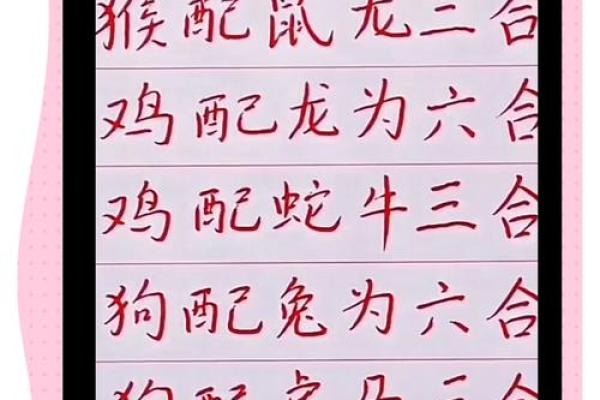 猴配鼠龙三合
鸡配龙为六合
鸡配蛇牛三合
狗配兔为六合
狗配虎三合